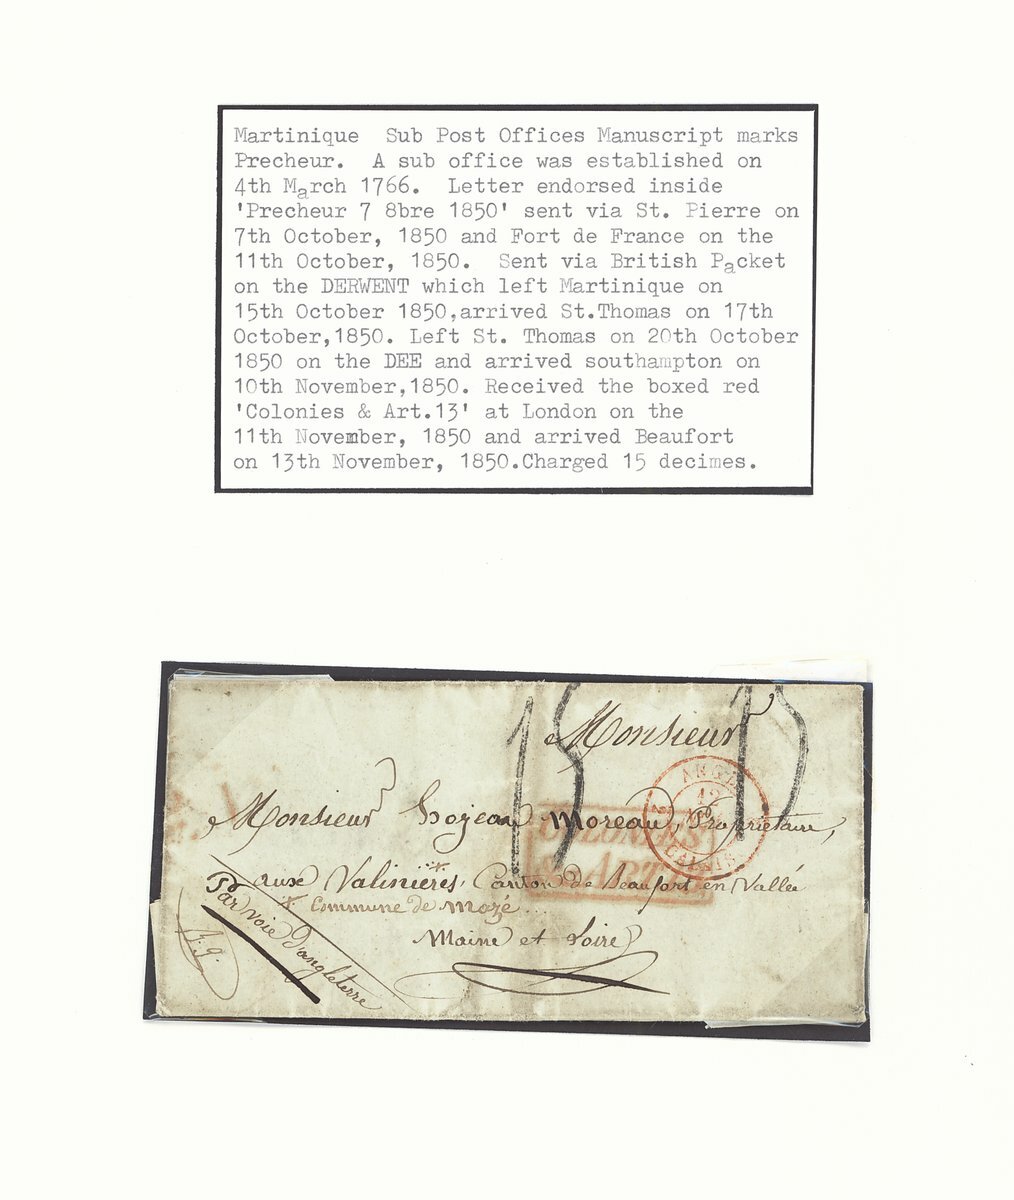 Martinique  Sub Post Offices Manuscript marks
Precheur.  A sub office was established on
4th March 1766.  Letter endorsed inside
'Precheur 7 8bre 1850' sent via St. Pierre on
7th October, 1850 and Fort de France on the
11th October, 1850.  Sent via British Packet
on the DERWENT which left Martinique on
15th October 1850,arrived St.Thomas on 17th
October,1850. Left St. Thomas on 20th October
1850 on the DEE and arrived southampton on
10th November,1850. Received the boxed red
'Colonies & Art.13' at London on the
11th November, 1850 and arrived Beaufort
on 13th November, 1850.Charged 15 decimes.
15 15
Monsieur
ANGL.
12
CALAIS
Monsieur Moreau, Propriétaire,
COLONIES
& ART.
aux Valinieres, Canton de Beaufort en Vallée
* Commune de Mazé...
Maine et Loire
Par voie d'angleterre